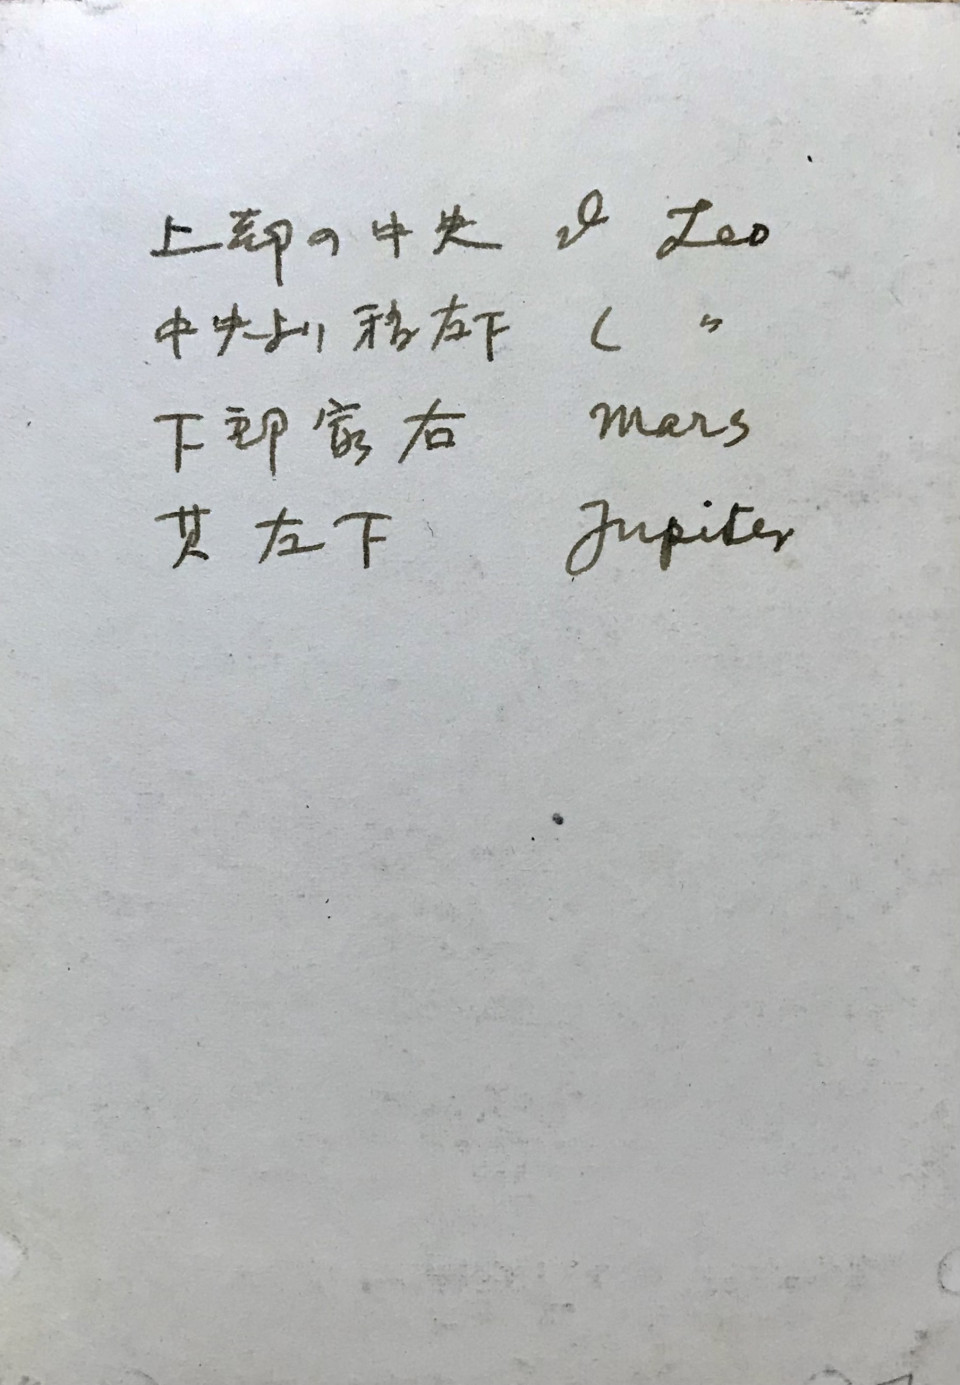 上部の中央 ϑ Leo
中央より稍左下 ι 〃
下部最右 Mars
其左下 Jupiter